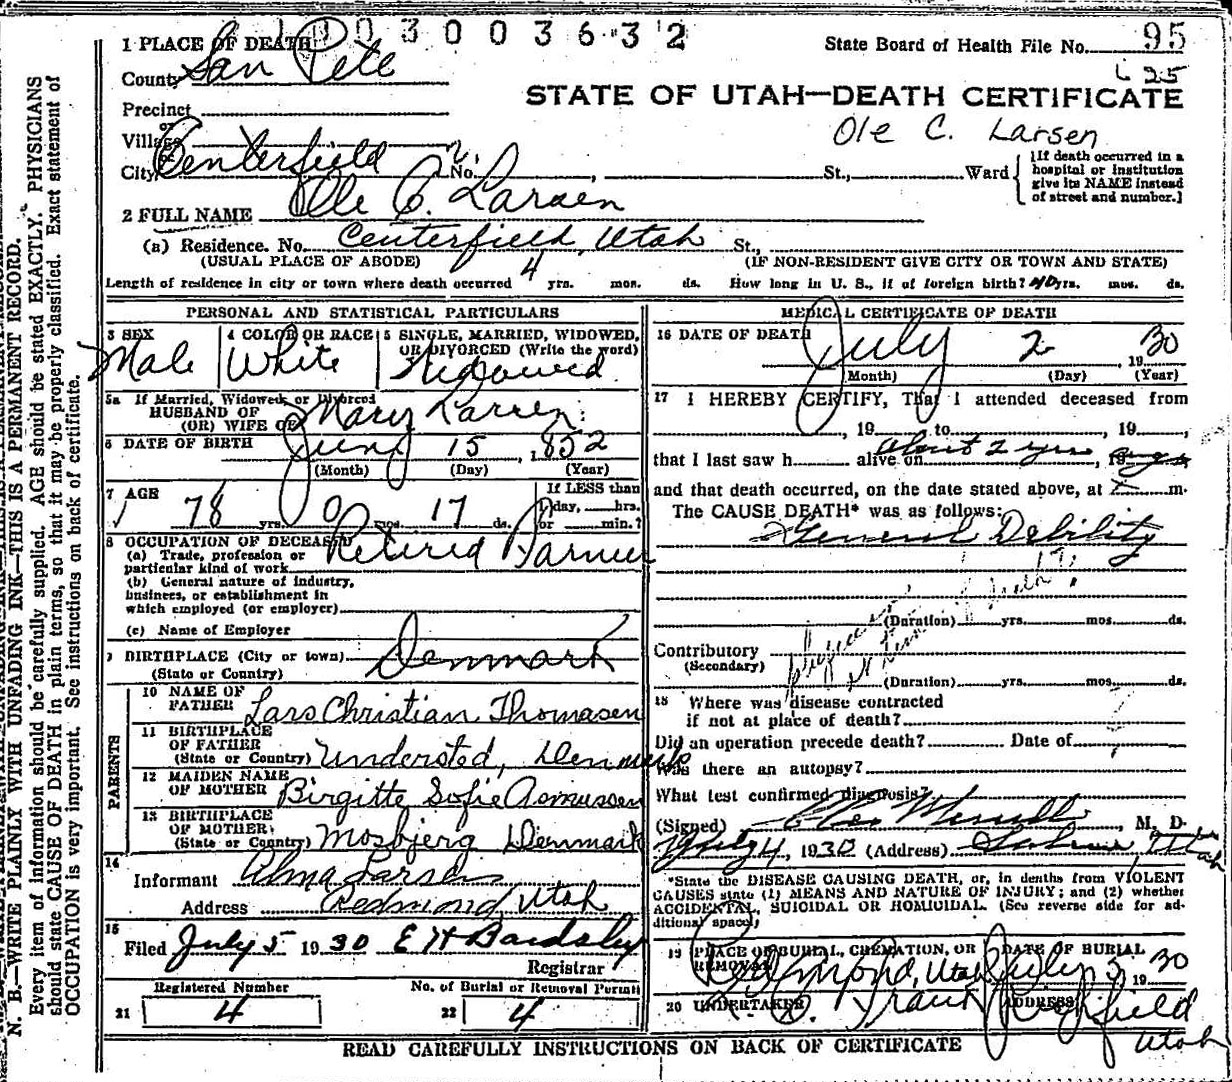 1 PLACE OF DEATH 1003003632 State Board of Health File No. 95
County San Pete L 35
STATE OF UTAH—DEATH CERTIFICATE
Precinct
or
Village
Ole C. Larsen
or
City Centerfield No. , St., Ward {If death occurred in a hospital or institution give its NAME instead of street and number.]
2 FULL NAME Ole C. Larsen
(a) Residence. No. Centerfield, Utah St.,
(USUAL PLACE OF ABODE) (IF NON-RESIDENT GIVE CITY OR TOWN AND STATE)
Length of residence in city or town where death occurred 4 yrs. mos. ds. How long in U. S., if of foreign birth? 40 yrs. mos. ds.
PERSONAL AND STATISTICAL PARTICULARS
3 SEX 4 COLOR OR RACE 5 SINGLE, MARRIED, WIDOWED, OR DIVORCED (Write the word)
Male White Widowed
5a If Married, Widowed, or Divorced
HUSBAND OF
(OR) WIFE OF Mary Larsen
6 DATE OF BIRTH June 15, 1852
(Month) (Day) (Year)
7 AGE If LESS than
78 yrs. 0 mos. 17 ds. 1 day, hrs.
or min.?
8 OCCUPATION OF DECEASED
(a) Trade, profession or
particular kind of work Retired Farmer
(b) General nature of industry,
business, or establishment in
which employed (or employer)
(c) Name of Employer
9 BIRTHPLACE (City or town) Denmark
(State or Country)
PARENTS
10 NAME OF
FATHER Lars Christian Thomasen
11 BIRTHPLACE
OF FATHER
(State or Country) Understed, Denmark
12 MAIDEN NAME
OF MOTHER Birgitte Sofie Asmussen
13 BIRTHPLACE
OF MOTHER
(State or Country) Mosbjerg Denmark
14
Informant Alma Larsen
Address Redmond, Utah
15
Filed July 5 1930 E H Bardsley
Registrar
Registered Number No. of Burial or Removal Permit
21 4 22 4
MEDICAL CERTIFICATE OF DEATH
16 DATE OF DEATH July 2 1930
(Month) (Day) (Year)
17 I HEREBY CERTIFY, That I attended deceased from
, 19 to , 19 ,
that I last saw h alive on about 2 yrs, 19 ago
and that death occurred, on the date stated above, at m.
The CAUSE DEATH* was as follows:
General Debility
(Duration) yrs. mos. ds.
Contributory
(Secondary)
(Duration) yrs. mos. ds.
18 Where was disease contracted
if not at place of death?
Did an operation precede death? Date of
Was there an autopsy?
What test confirmed diagnosis?
(Signed) , M. D.
July 4, 1930 (Address) Salina, Utah
*State the DISEASE CAUSING DEATH, or, in deaths from VIOLENT
CAUSES state (1) MEANS AND NATURE OF INJURY; and (2) whether
ACCIDENTAL, SUICIDAL OR HOMICIDAL. (See reverse side for ad-
ditional space.)
19 PLACE OF BURIAL, CREMATION, OR REMOVAL DATE OF BURIAL
Redmond, Utah July 5 1930
20 UNDERTAKER ADDRESS
Richfield
Utah
READ CAREFULLY INSTRUCTIONS ON BACK OF CERTIFICATE
N. B.—WRITE PLAINLY WITH UNFADING INK—THIS IS A PERMANENT RECORD.
Every item of information should be carefully supplied. AGE should be stated EXACTLY. PHYSICIANS
should state CAUSE OF DEATH in plain terms, so that it may be properly classified. Exact statement of
OCCUPATION is very important. See instructions on back of certificate.